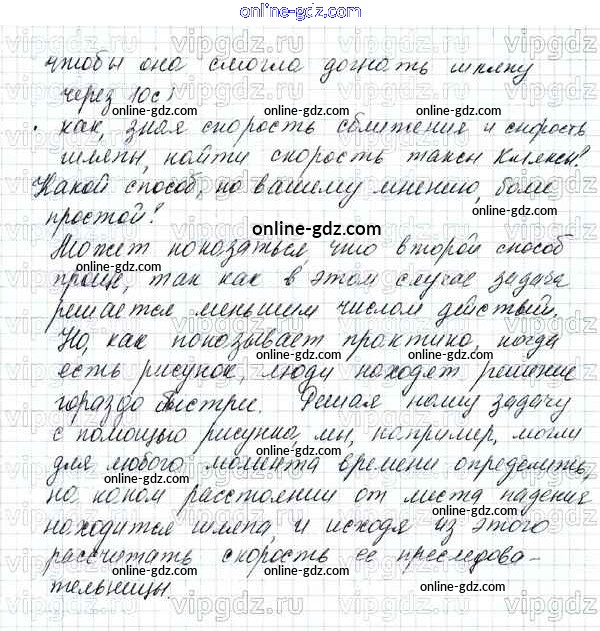 online-gdz.com
чтобы она смогла догнать шляпу
через 10с;
• как, зная скорость сближения и скорость
шляпы, найти скорость таксы Кляксы?
Какой способ, по вашему мнению, более
простой?
Может показаться, что второй способ
проще, так как в этом случае задача
решается меньшим числом действий.
Но, как показывает практика, когда
есть рисунок, люди находят решение
гораздо быстрее. Решая нашу задачу
с помощью рисунка, мы, например, могли
для любого момента времени определить,
на каком расстоянии от места падения
находится шляпа, и исходя из этого
рассчитать скорость её преследова-
тельницы.